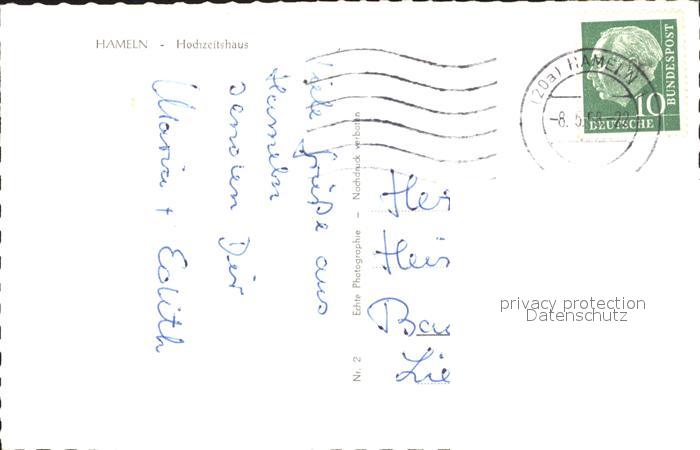 HAMELN - Hochzeitshaus
Viele Grüße aus
Hameln
senden Dir
Maria + Edith
Nr. 2 Echte Photographie - Nachdruck verboten
(20a) HAMELN
-8. 5.
10
DEUTSCHE
BUNDESPOST
Her
Hei
Bau
Lie
privacy protection
Datenschutz